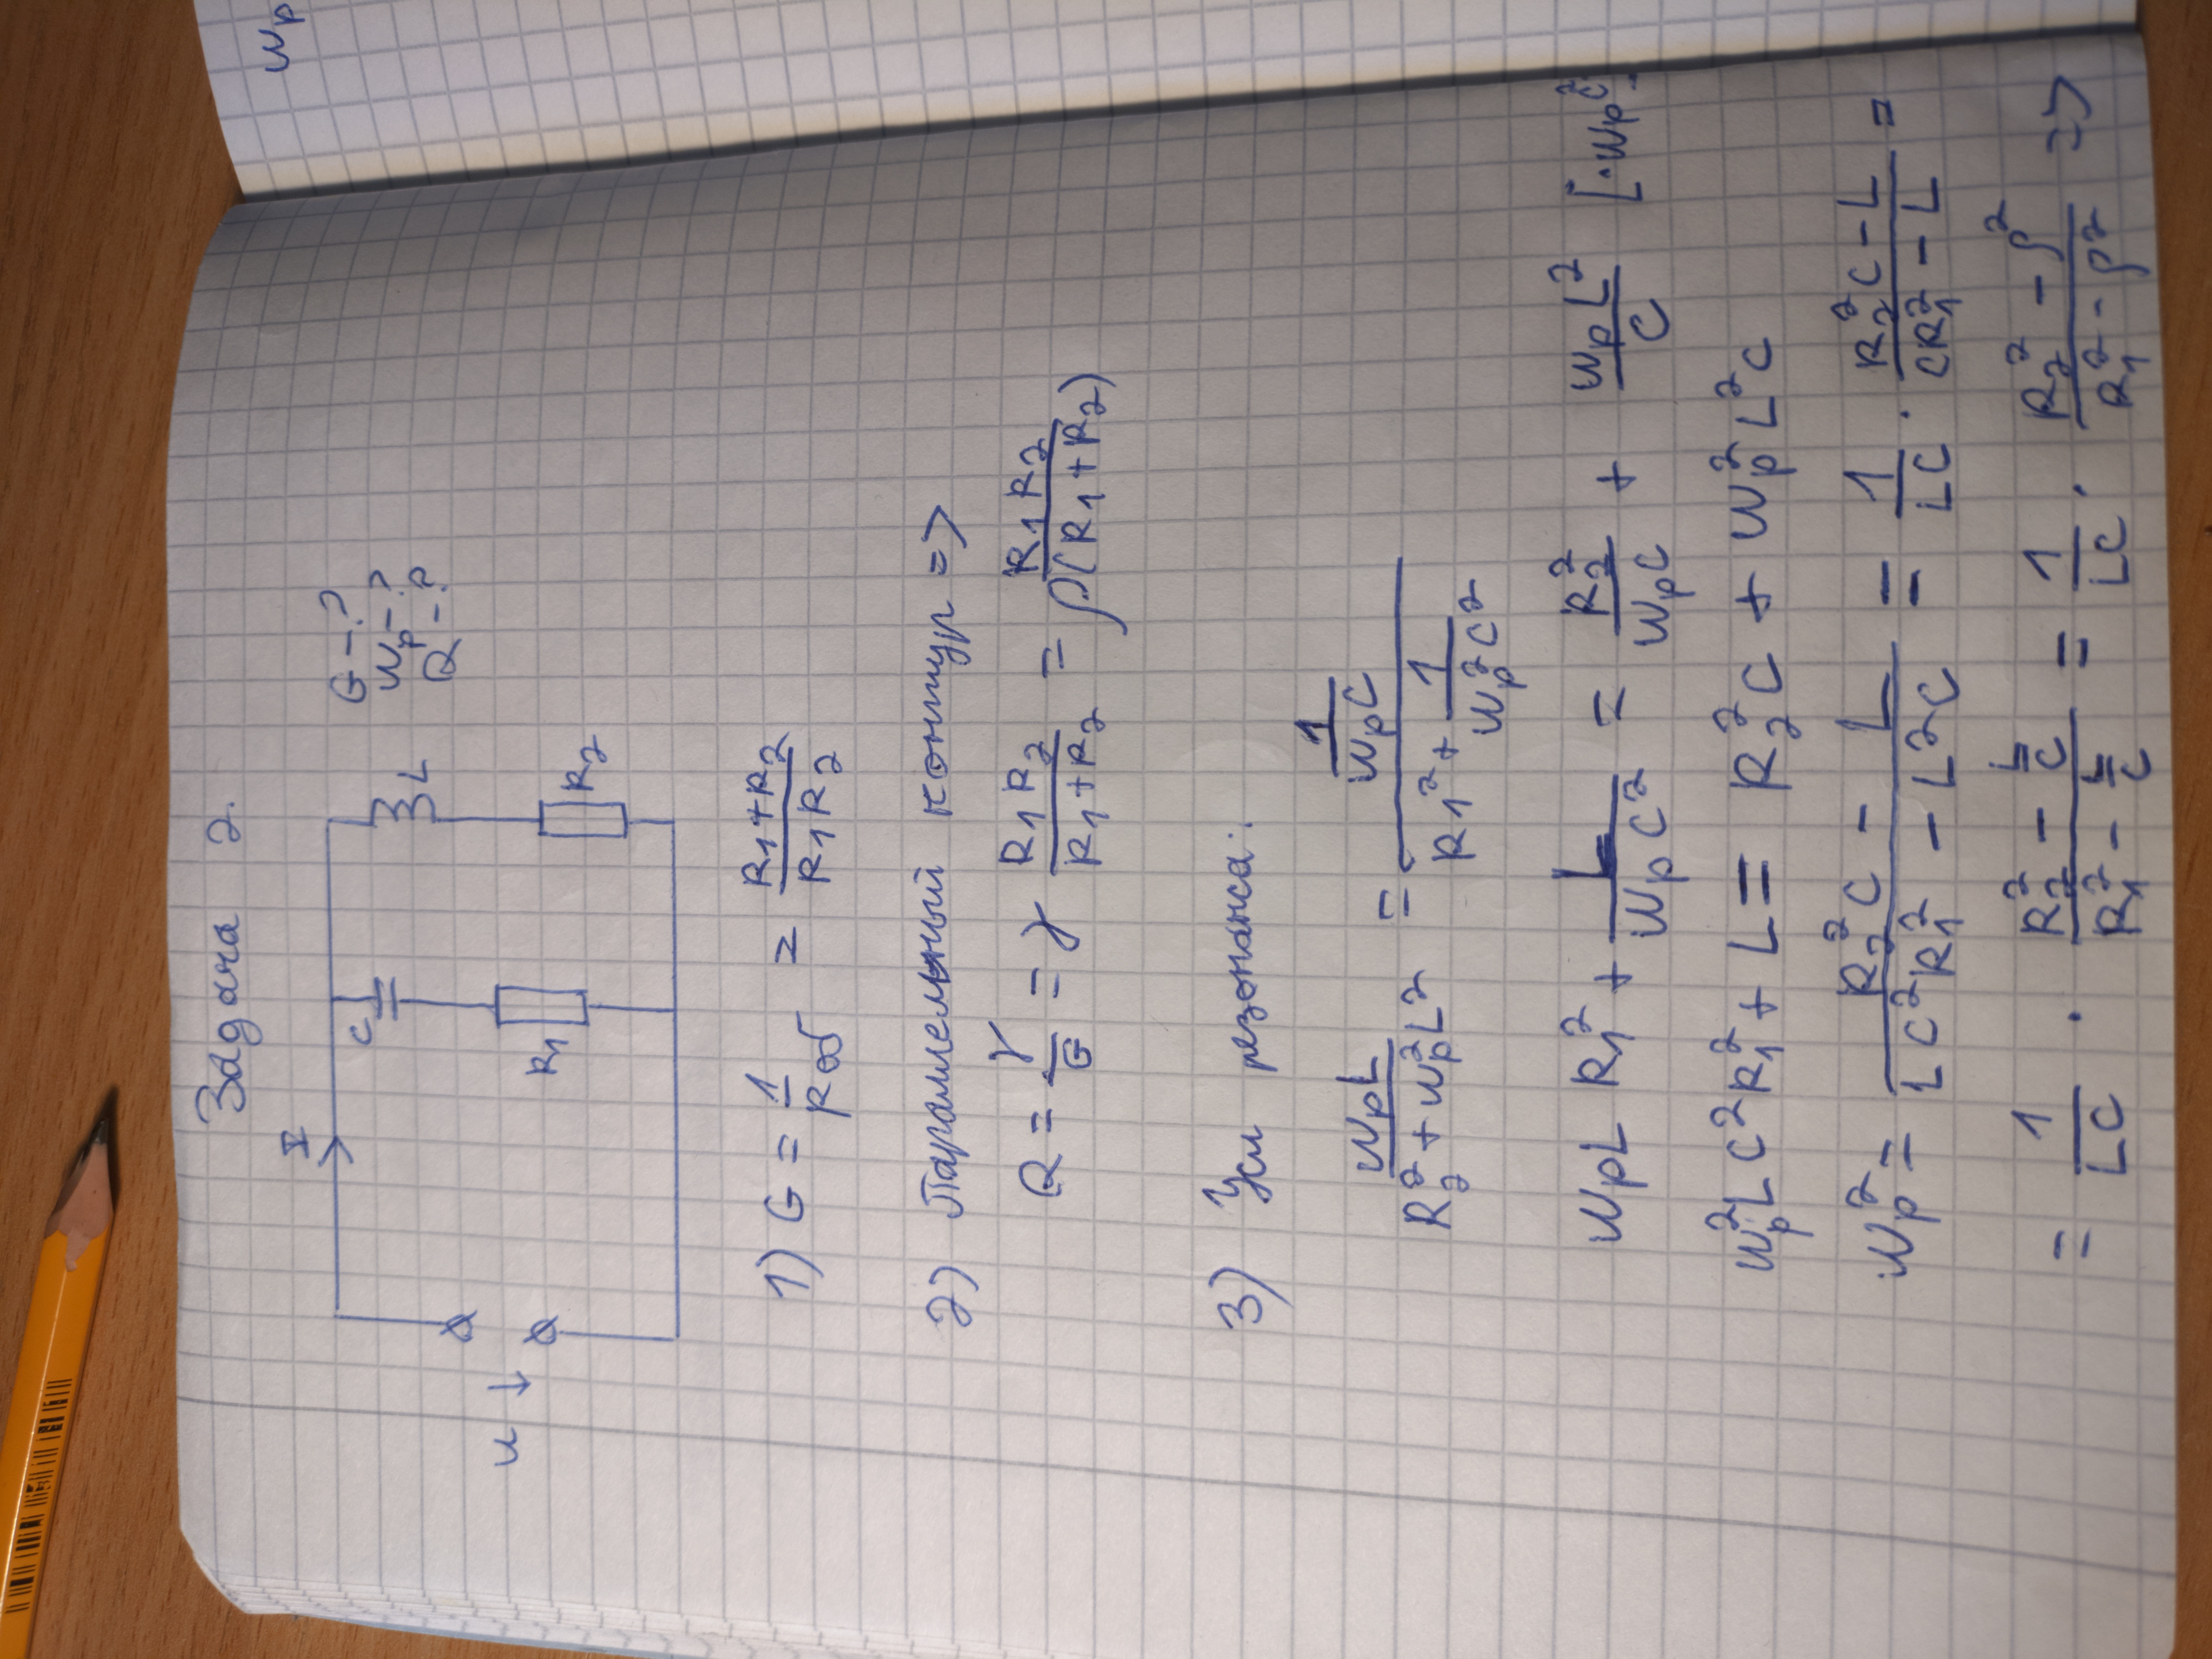 Задача 2.
I
C
L
G - ?
ωр - ?
Q - ?
U ↓
R₁
R₂
1) G = 1/Rоб = (R₁+R₂)/(R₁R₂)
2) Параллельный контур =>
Q = γ/G = γ (R₁R₂)/(R₁+R₂) = (R₁R₂)/(ρ(R₁+R₂))
3) Усл резонанса:
(ωрL)/(R₂² + ωр²L²) = (1/(ωрC))/(R₁² + 1/(ωр²C²))
ωрL R₁² + L/(ωрC²) = R₂²/(ωрC) + (ωрL²)/C [·ωрC²]
ωр²LC²R₁² + L = R₂²C + ωр²L²C
ωр² = (R₂²C - L)/(LC²R₁² - L²C) = 1/(LC) · (R₂²C - L)/(CR₁² - L) =
= 1/(LC) · (R₂² - L/C)/(R₁² - L/C) = 1/(LC) · (R₂² - ρ²)/(R₁² - ρ²) =>
ωр